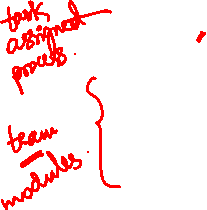 task
assignment
process.
team
modules.